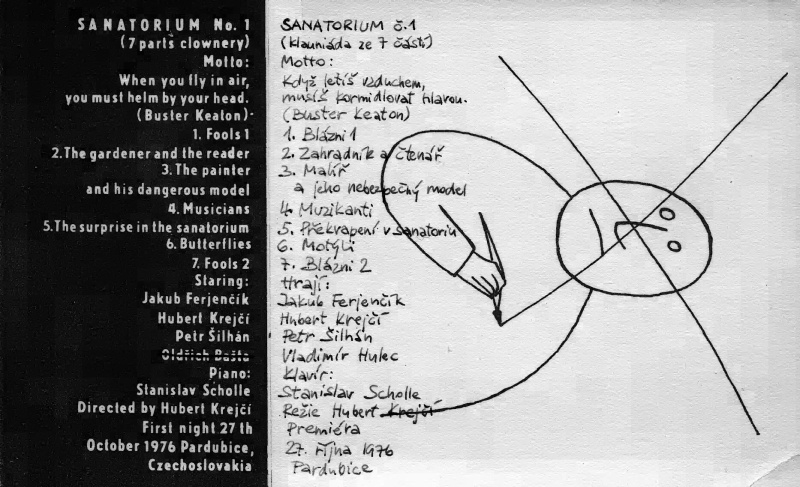 SANATORIUM No. 1
(7 parts clownery)
Motto:
When you fly in air,
you must helm by your head.
(Buster Keaton)·
1. Fools 1
2. The gardener and the reader
3. The painter
and his dangerous model
4. Musicians
5. The surprise in the sanatorium
6. Butterflies
7. Fools 2
Staring:
Jakub Ferjenčík
Hubert Krejčí
Petr Šilhán
Oldřich Bašta
Piano:
Stanislav Scholle
Directed by Hubert Krejčí
First night 27 th
October 1976 Pardubice,
Czechoslovakia
SANATORIUM č.1
(klauniáda ze 7 částí)
Motto:
Když letíš vzduchem,
musíš kormidlovat hlavou.
(Buster Keaton)
1. Blázni 1
2. Zahradník a čtenář
3. Malíř
a jeho nebezpečný model
4. Muzikanti
5. Překvapení v sanatoriu
6. Motýli
7. Blázni 2
Hrají:
Jakub Ferjenčík
Hubert Krejčí
Petr Šilhán
Vladimír Hulec
Klavír:
Stanislav Scholle
Režie Hubert Krejčí
Premiéra
27. října 1976
Pardubice